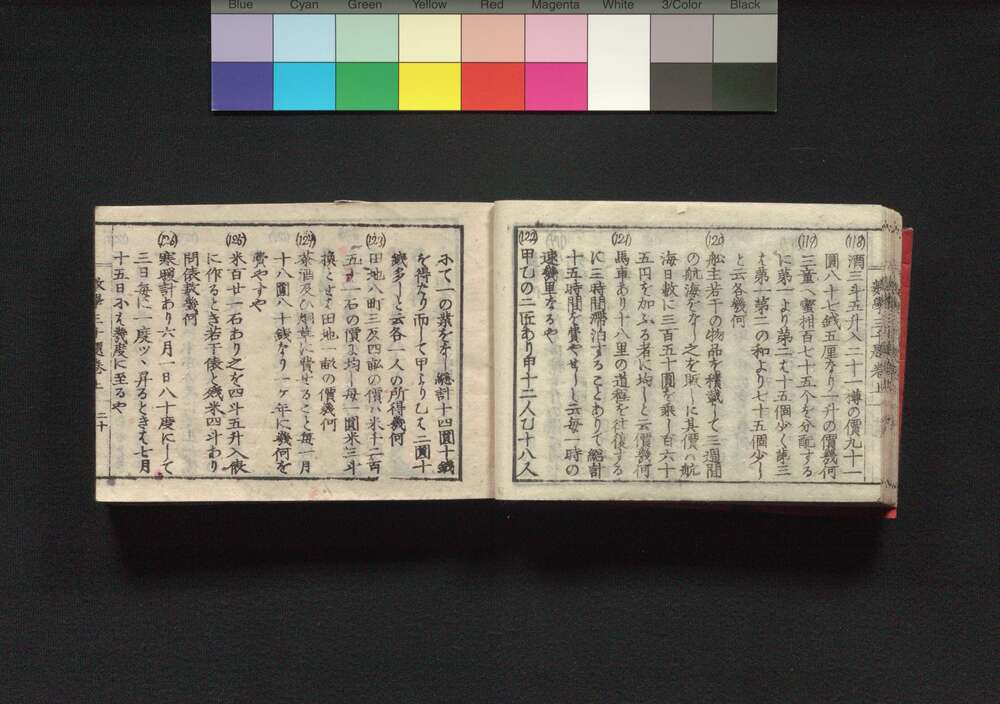 Blue Cyan Green Yellow Red Magenta White 3/Color Black
(118) 酒三斗五升入二十一樽の價九十一
圓八十七銭五厘なり一升の價幾何
(119) 三童へ蜜柑百七十五个を分配する
に第一より第二は十五個少く第三
は第一第二の和より七十五個少し
と云各幾何
(120) 舩主若干の物品を積載して三週間
の航海をなし之を販しに其價ハ航
海日數に三百五十圓を乘し百六十
五円を加ふる者に均しと云價幾何
(121) 馬車あり十八里の道程を往復する
に三時間滯泊することありて総計
十五時間を費やせしと云毎一時の
速幾里なるや
(122) 甲乙の二匠あり甲十二人乙十八人
にて一の業をなし總計十四圓十銭
を得たり而して甲より乙は二圓十
銭多しと云各一人の所得幾何
(123) 田地八町三反四畝の價ハ米千二百
五十一石の價に均し毎一圓米三斗
換とせは田地一畝の價幾何
(124) 茶酒及ひ烟草に費せること毎一月
十八圓八十銭なり一ヶ年に幾何を
費やすや
(125) 米百廿一石あり之を四斗五升入俵
に作るとき若干俵と幾米四斗あり
問俵数幾何
(126) 寒暖計あり六月一日八十度にして
三日毎に一度ツヽ昇るときは七月
十五日には幾度に至るや
數學三千題卷上 二十